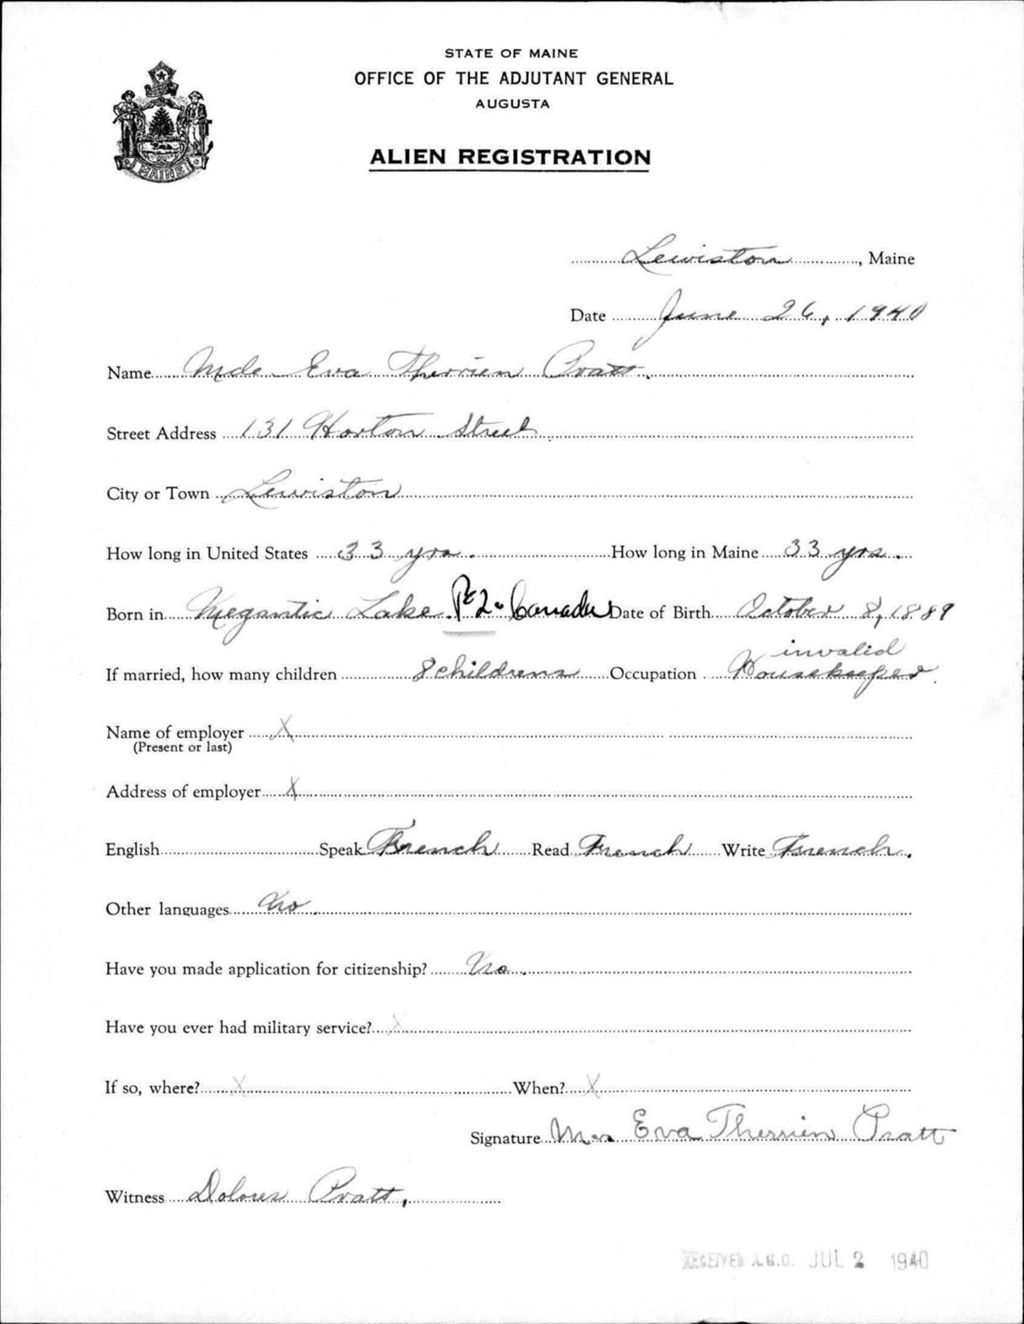 STATE OF MAINE
OFFICE OF THE ADJUTANT GENERAL
AUGUSTA
ALIEN REGISTRATION
MAINE
Lewiston, Maine
Date June 26, 1940
Name Mde Eva Therrien Pratt.
Street Address 131 Horton Street
City or Town Lewiston
How long in United States 33 yrs. How long in Maine 33 yrs.
Born in Megantic Lake P.2. Canada Date of Birth October 8, 1889
invalid
If married, how many children 8 childrens Occupation Housekeeper.
Name of employer X
(Present or last)
Address of employer X
English Speak French Read French Write French.
Other languages No.
Have you made application for citizenship? No.
Have you ever had military service? X
If so, where? X When? X
Signature Mrs Eva Therrien Pratt
Witness Dolores Pratt,
RECEIVED A.G.O. JUL 2 1940